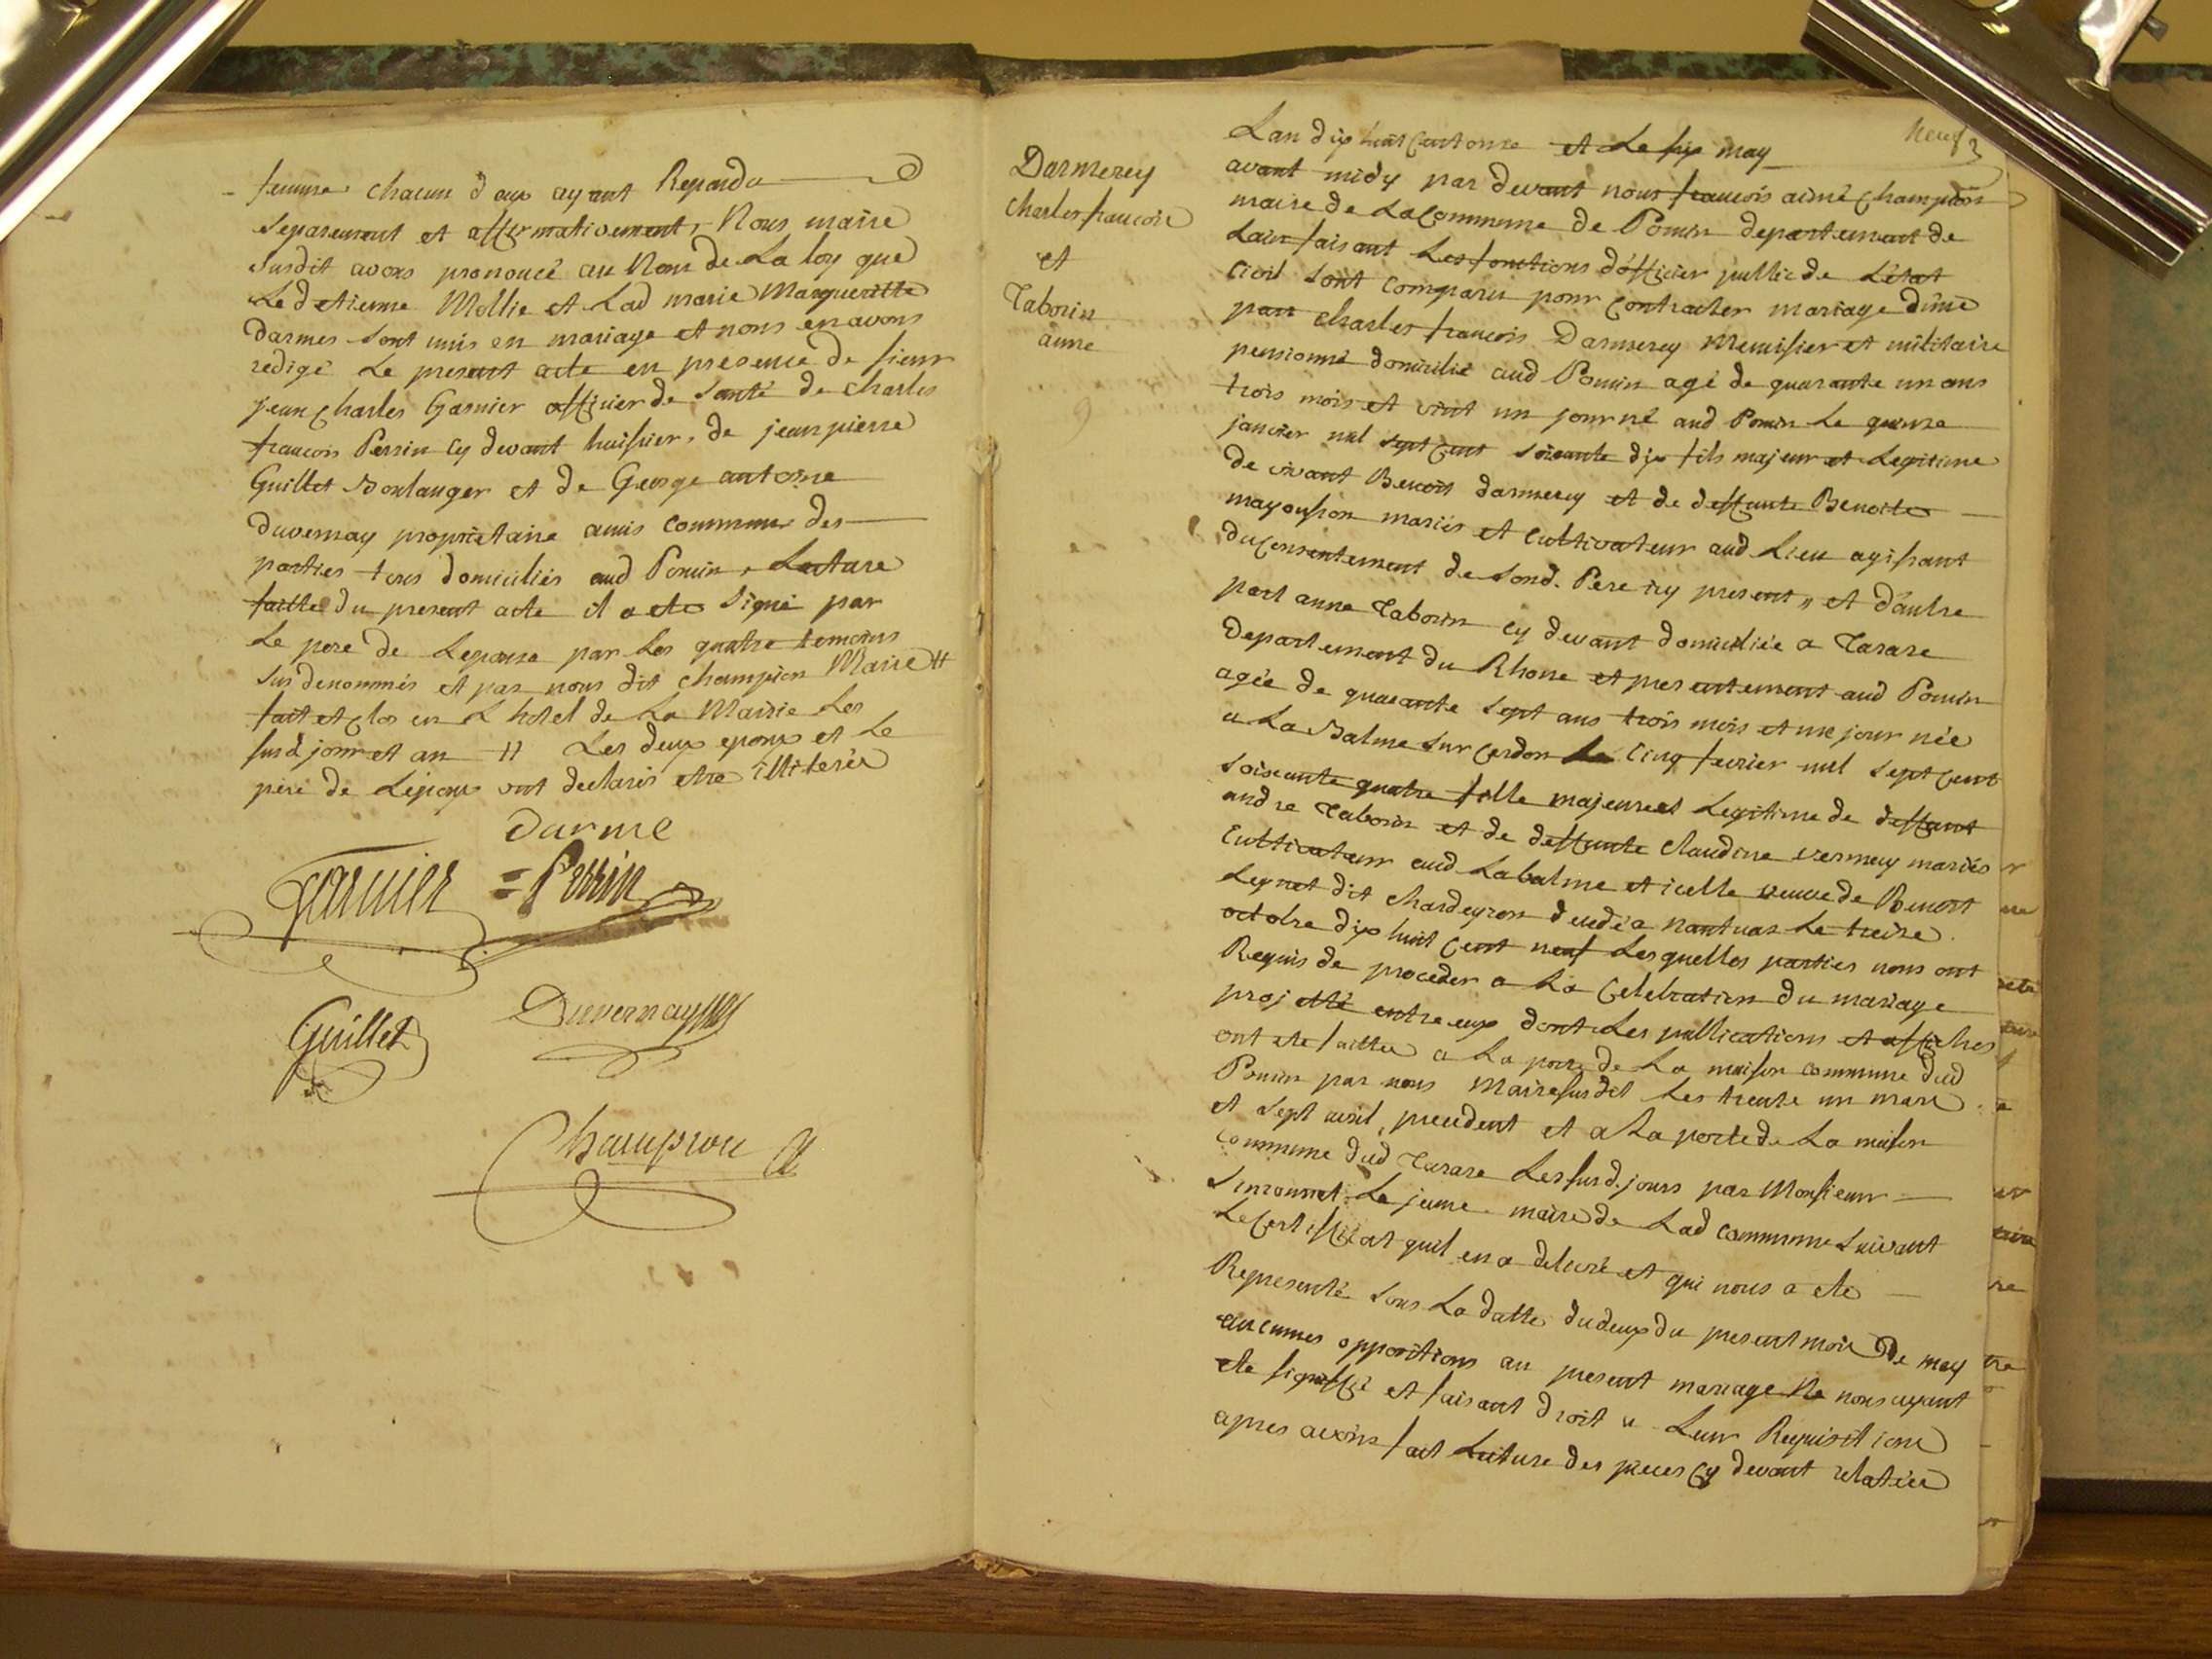 femme chacun d'aux ayant Repondu
separement et affirmativement, Nous maire
susdit avons prononcé au Nom de La loy que
Le d etienne Mollie et Lad marie Margueritte
Darmes sont unis en mariage et nous en avons
redigé Le present acte en presence de sieur
jean charles Garnier officier de santé de charles
francois Perrin cy devant huissier, de jean pierre
Guillet Boulanger et de George antoine
Duvernay propriétaire amis commun des
parties tous domiciliés aud Poncin, Lecture
faitte du present acte il a ete signé par
Le pere de Lepouse par Les quatre temoins
sus denommés et par nous dit champion Maire #
fait et clos en L hotel de La Mairie Les
susd jour et an # Les deux epoux et Le
pere de Lépoux ont declarés etre illiterés
Darme
Garnier = Perrin
Guillet Duvernay
Champion
neuf
Darmerey
charles francois
et
Taborin
anne
Lan dix huit cent onze et Le six may
avant midy par devant nous francois aimé champion
maire de La Commune de Poncin departement de
Lain faisant Les fonctions d'officier public de L'état
civil sont comparu pour contracter mariage d'une
part charles francois Darmerey Menuisier et militaire
pensionné domicilié aud Poncin agé de quarante un ans
trois mois et vint un jour né aud Poncin Le quinze
janvier mil sept cent soixante dix fils majeur et Legitime
de vivant Benoit darmerey et de deffunte Benoite
mayousson mariés et cultivateur aud Lieu agissant
du consentement de sond. Pere icy present, et d'autre
part anne Taborin cy devant domiciliée a Tarare
Departement du Rhone et presentement aud Poncin
agée de quarante sept ans trois mois et un jour née
a La Balme sur cerdon Le cinq fevrier mil sept cent
soixante quatre fille majeure et Legitime de deffunt
andre Taborin et de deffunte claudine vermey mariés
Cultivateur aud Labalme et icelle veuve de Benoit
Leynet dit chardeyron decedé a Nantuas Le treize
octobre dix huit cent neuf Lesquelles parties nous ont
Requis de proceder a La Celebration du mariage
projetté entre eux dont Les publications et affiches
ont ete faittes a La porte de La maison commune dud
Poncin par nous Maire susdit Les trente un mars
et sept avril, precedent et a La porte de La maison
commune dud Tarare Les susd. jours par Monsieur
Simonnet Le jeune maire de Lad commune suivant
Le Certifficat quil en a delivré et qui nous a ete
Representé sous La datte du deux du present mois De may
aucunes oppositions au present mariage Ne nous ayant
ete signiffié et faisant droit a Leur Requisitions
apres avoir fait Lecture des pieces cy devant relatées